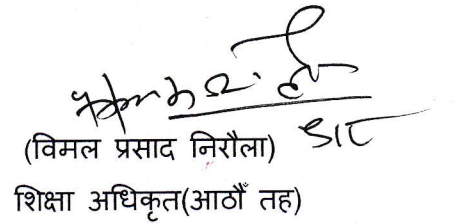 (विमल प्रसाद निरौला)
शिक्षा अधिकृत(आठौँ तह)